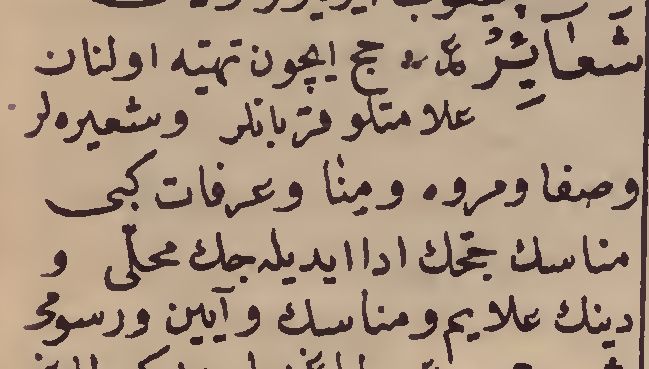 شَعَايِرُ عل‍ حج ايچون تهيه اولنان
علامتلو قربانلر وشعيره لر
وصفا ومروه ومِنٰا وعرفات كبى
مناسك حجك ادا ايديله جك محلّى و
دينك علايم ومناسك وآيين ورسومى